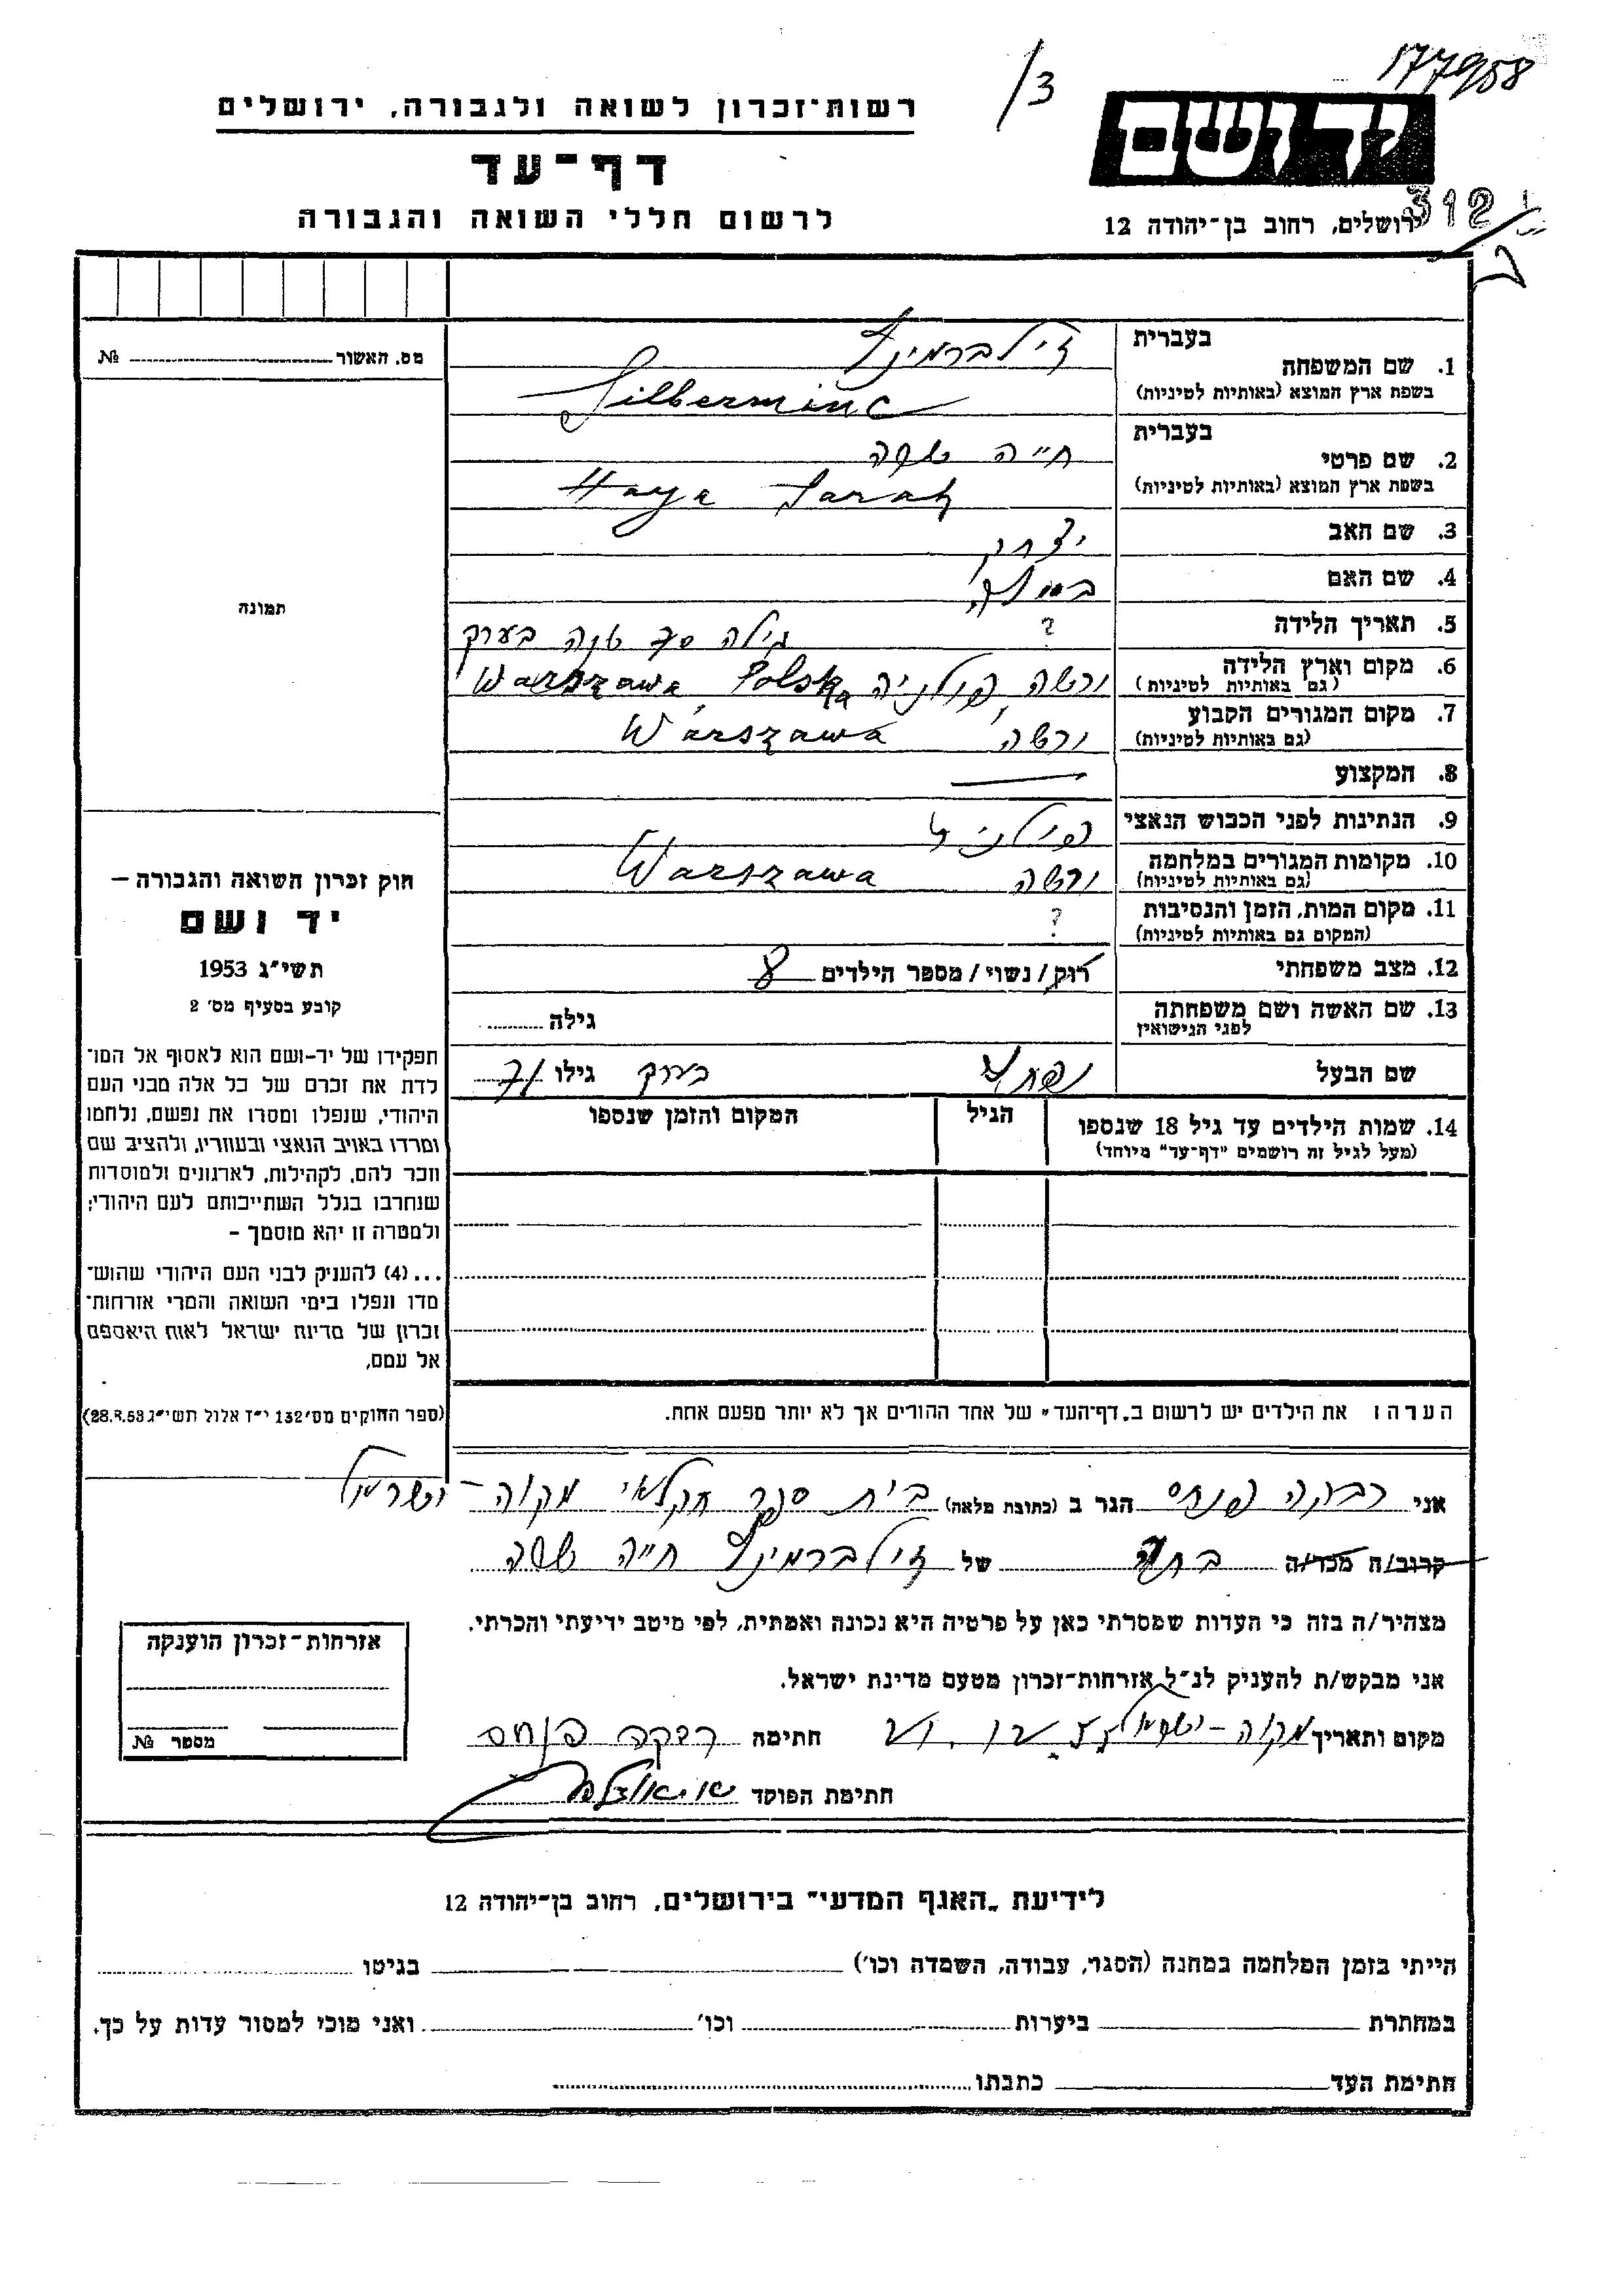 177958
/3
רשות-זכרון לשואה ולגבורה, ירושלים
יד ושם
דף-עד
312
לרשום חללי השואה והגבורה
ירושלים, רחוב בן-יהודה 12
מס. האשור № 
בעברית
1. שם המשפחה זילברמינץ
בשפת ארץ המוצא (באותיות לטיניות) Silberminc
בעברית
2. שם פרטי חייה שרה
בשפת ארץ המוצא (באותיות לטיניות) Haya Sarah
3. שם האב יצחק
4. שם האם
תמונה
5. תאריך הלידה ? גילה שנה בערך
6. מקום וארץ הלידה ורשה, פולניה Warszawa, Polska
(גם באותיות לטיניות)
7. מקום המגורים הקבוע ורשה, Warszawa
(גם באותיות לטיניות)
8. המקצוע —
9. הנתינות לפני הכבוש הנאצי פולנית
10. מקומות המגורים במלחמה ורשה Warszawa
(גם באותיות לטיניות)
11. מקום המות, הזמן והנסיבות ?
(המקום גם באותיות לטיניות)
12. מצב משפחתי רוק/נשוי/מספר הילדים 8
13. שם האשה ושם משפחתה גילה
לפני הנישואין
שם הבעל גילו בערך
14. שמות הילדים עד גיל 18 שנספו הגיל המקום והזמן שנספו
(מעל לגיל זה רושמים "דף-עד" מיוחד)
חוק זכרון השואה והגבורה –
יד ושם
תשי"ג 1953
קובע בסעיף מס' 2
תפקידו של יד-ושם הוא לאסוף אל המו-
לדת את זכרם של כל אלה מבני העם
היהודי, שנפלו ומסרו את נפשם, נלחמו
ומרדו באויב הנאצי ובעוזריו, ולהציב שם
וזכר להם, לקהילות, לארגונים ולמוסדות
שנחרבו בגלל השתייכותם לעם היהודי;
ולמטרה זו יהא מוסמך –
...(4) להעניק לבני העם היהודי שהוש-
מדו ונפלו בימי השואה והמרי אזרחות-
זכרון של מדינת ישראל לאות היאספם
אל עמם.
(ספר החוקים מס' 132 י"ז אלול תשי"ג 28.8.53)
הערה: את הילדים יש לרשום ב"דף-העד" של אחד ההורים אך לא יותר מפעם אחת.
אני רבקה פנחס הגר ב (כתובת מלאה) בית ספר חקלאי מקוה-ישראל
קרוב/ה מכר/ה בתה של זילברמינץ חייה שרה
מצהיר/ה בזה כי העדות שמסרתי כאן על פרטיה היא נכונה ואמתית, לפי מיטב ידיעתי והכרתי.
אני מבקש/ת להעניק לנ"ל אזרחות-זכרון מטעם מדינת ישראל.
מקום ותאריך מקוה-ישראל חתימה רבקה פנחס
חתימת הפוקד
אזרחות-זכרון הוענקה
מספר №
לידיעת "האגף המדעי" בירושלים, רחוב בן-יהודה 12
הייתי בזמן המלחמה במחנה (הסגר, עבודה, השמדה וכו') בגיטו
במחתרת ביערות וכו' ואני מוכן למסור עדות על כך.
חתימת העד כתבתו